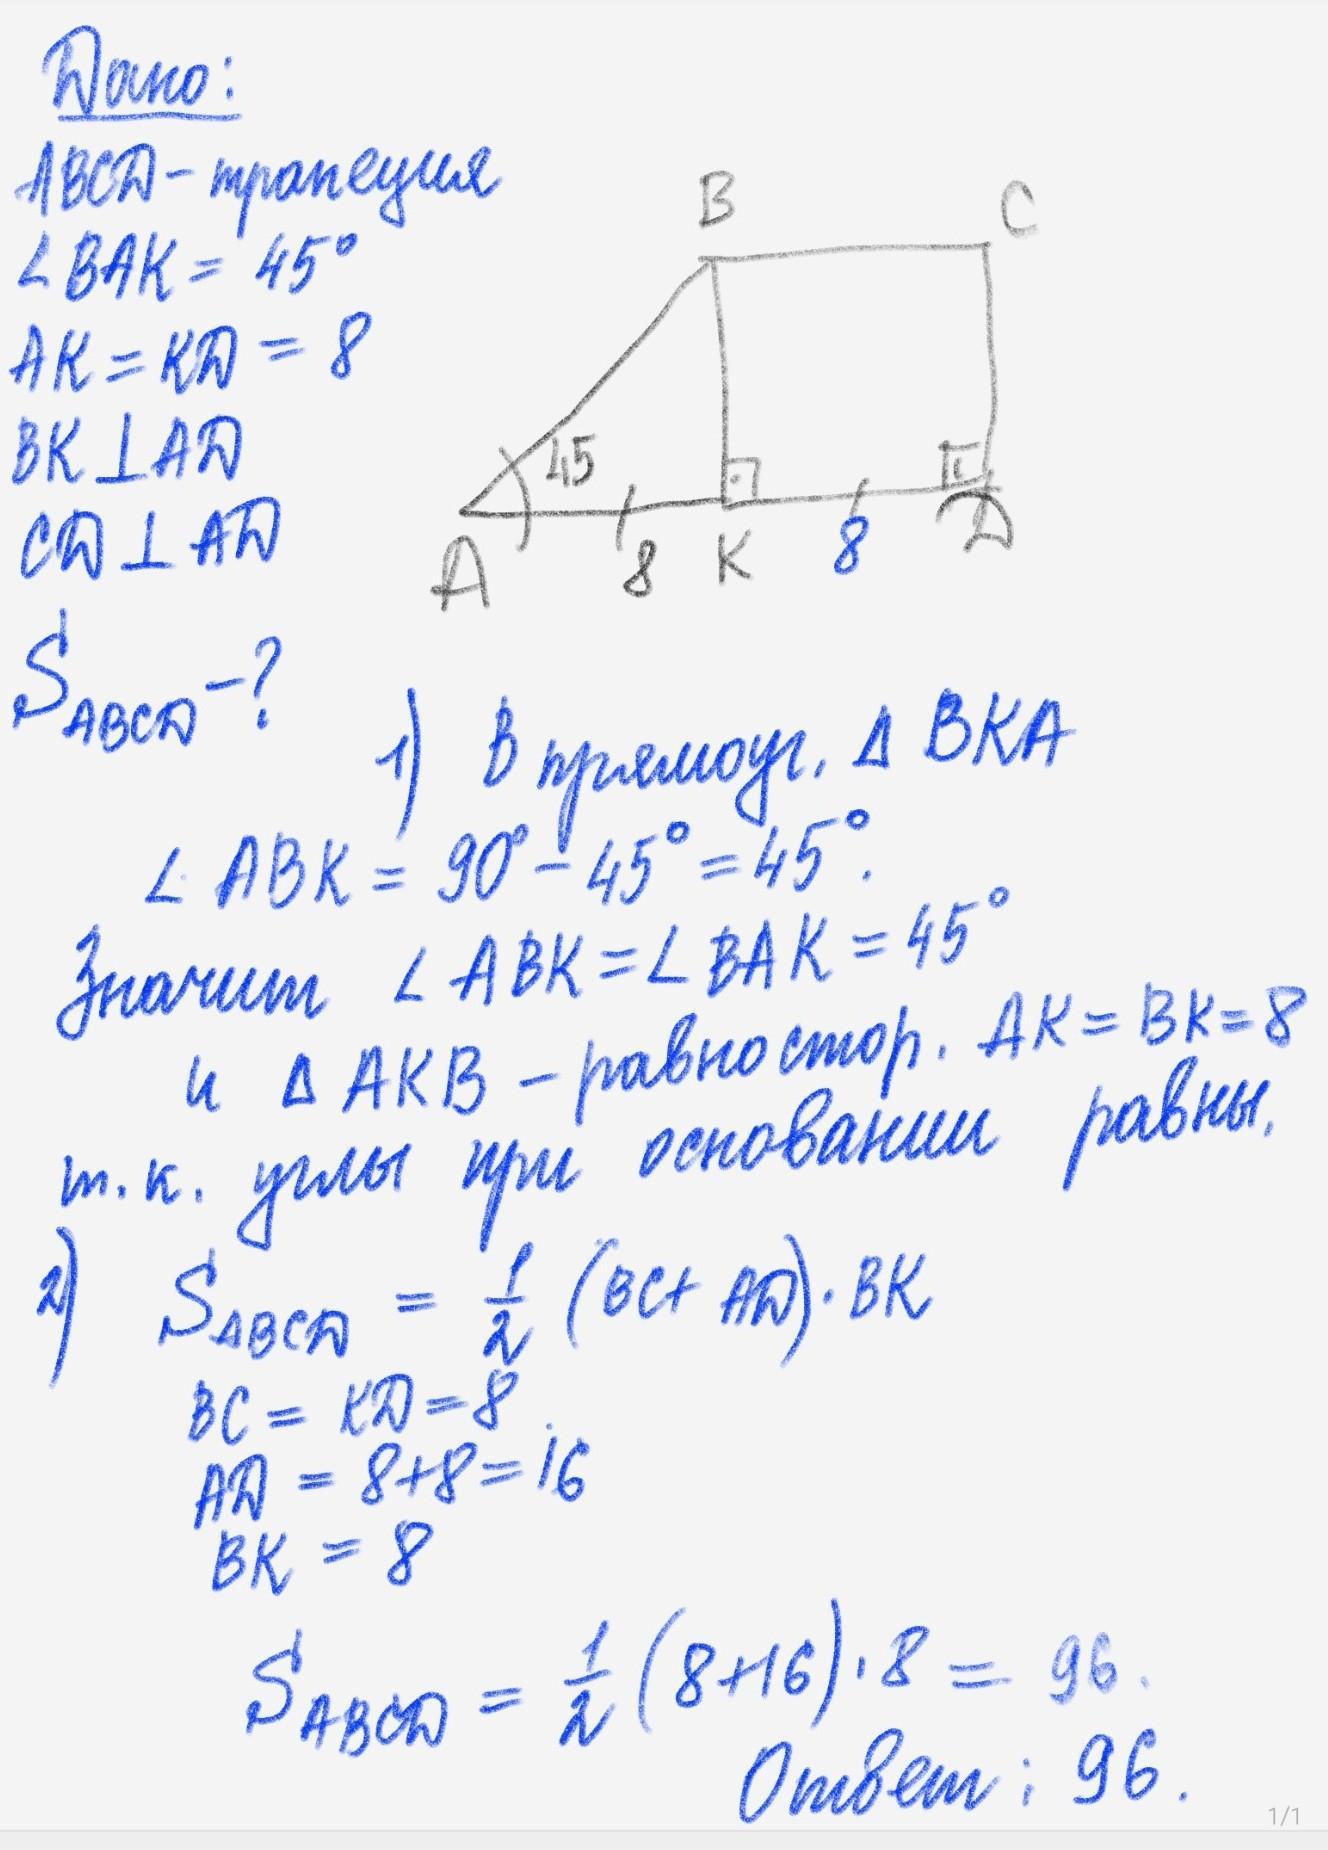 Дано:
ABCD - трапеция
∠BAK = 45°
AK = KD = 8
BK ⊥ AD
CD ⊥ AD
S ABCD - ?
B
C
45
A
8
K
8
D
1) В прямоуг. Δ BKA
∠ ABK = 90° - 45° = 45°.
Значит ∠ ABK = ∠ BAK = 45°
и Δ AKB - равностор. AK = BK = 8
т.к. углы при основании равны.
2) S ABCD = 1/2 (BC + AD) · BK
BC = KD = 8
AD = 8+8 = 16
BK = 8
S ABCD = 1/2 (8+16) · 8 = 96.
Ответ: 96.
1/1